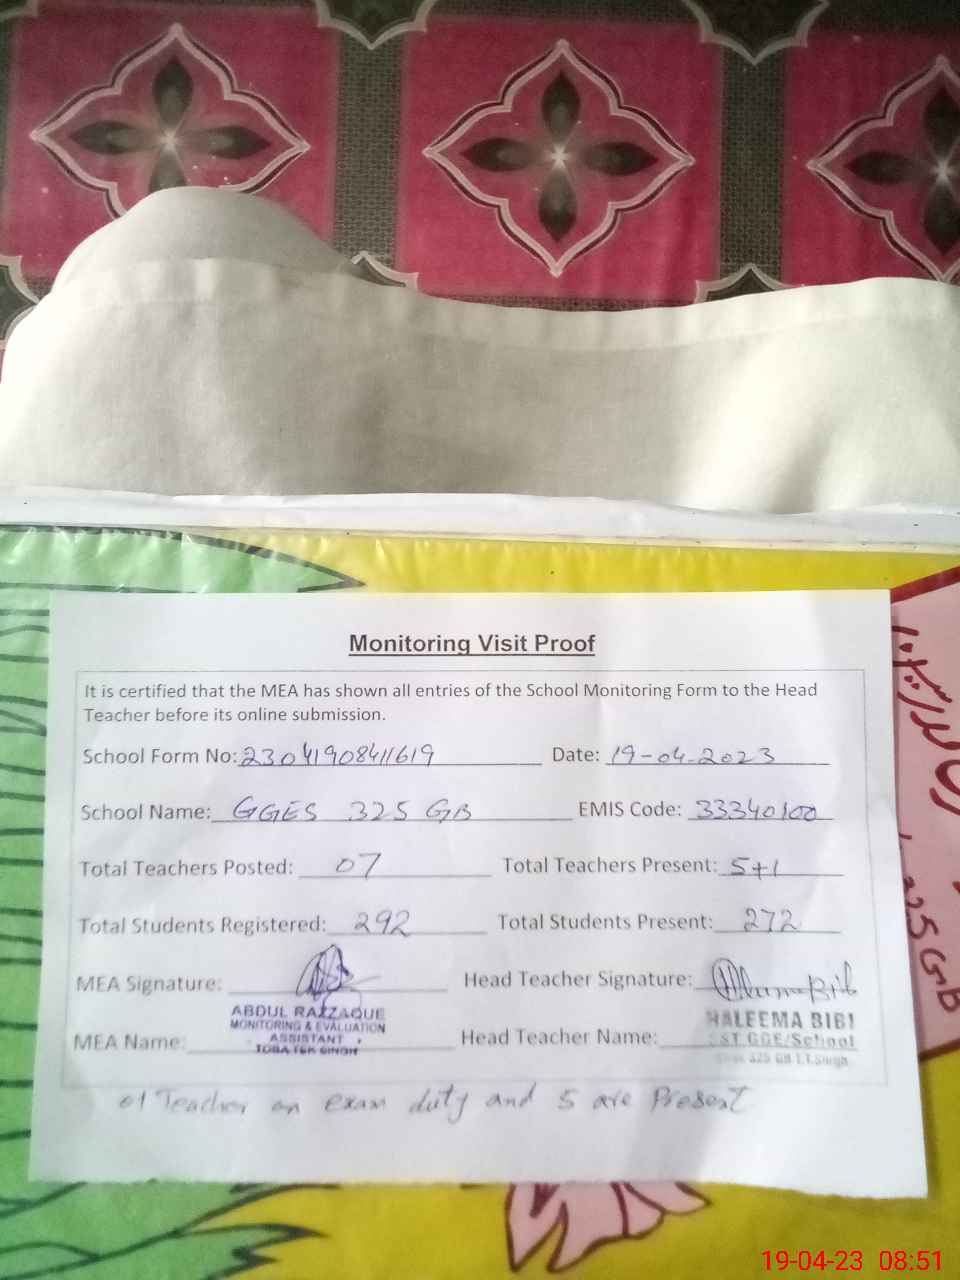 Monitoring Visit Proof
It is certified that the MEA has shown all entries of the School Monitoring Form to the Head
Teacher before its online submission.
School Form No: 23041908411619 Date: 19-04-2023
School Name: GGES 325 GB EMIS Code: 33340100
Total Teachers Posted: 07 Total Teachers Present: 5+1
Total Students Registered: 292 Total Students Present: 272
MEA Signature: Head Teacher Signature:
ABDUL RAZZAQUE
MONITORING & EVALUATION
ASSISTANT
TOBA TEK SINGH
MEA Name: Head Teacher Name:
HALEEMA BIBI
SST GGE/School
325 GB T.T.Singh
01 Teacher on exam duty and 5 are Present
325 GB
19-04-23 08:51